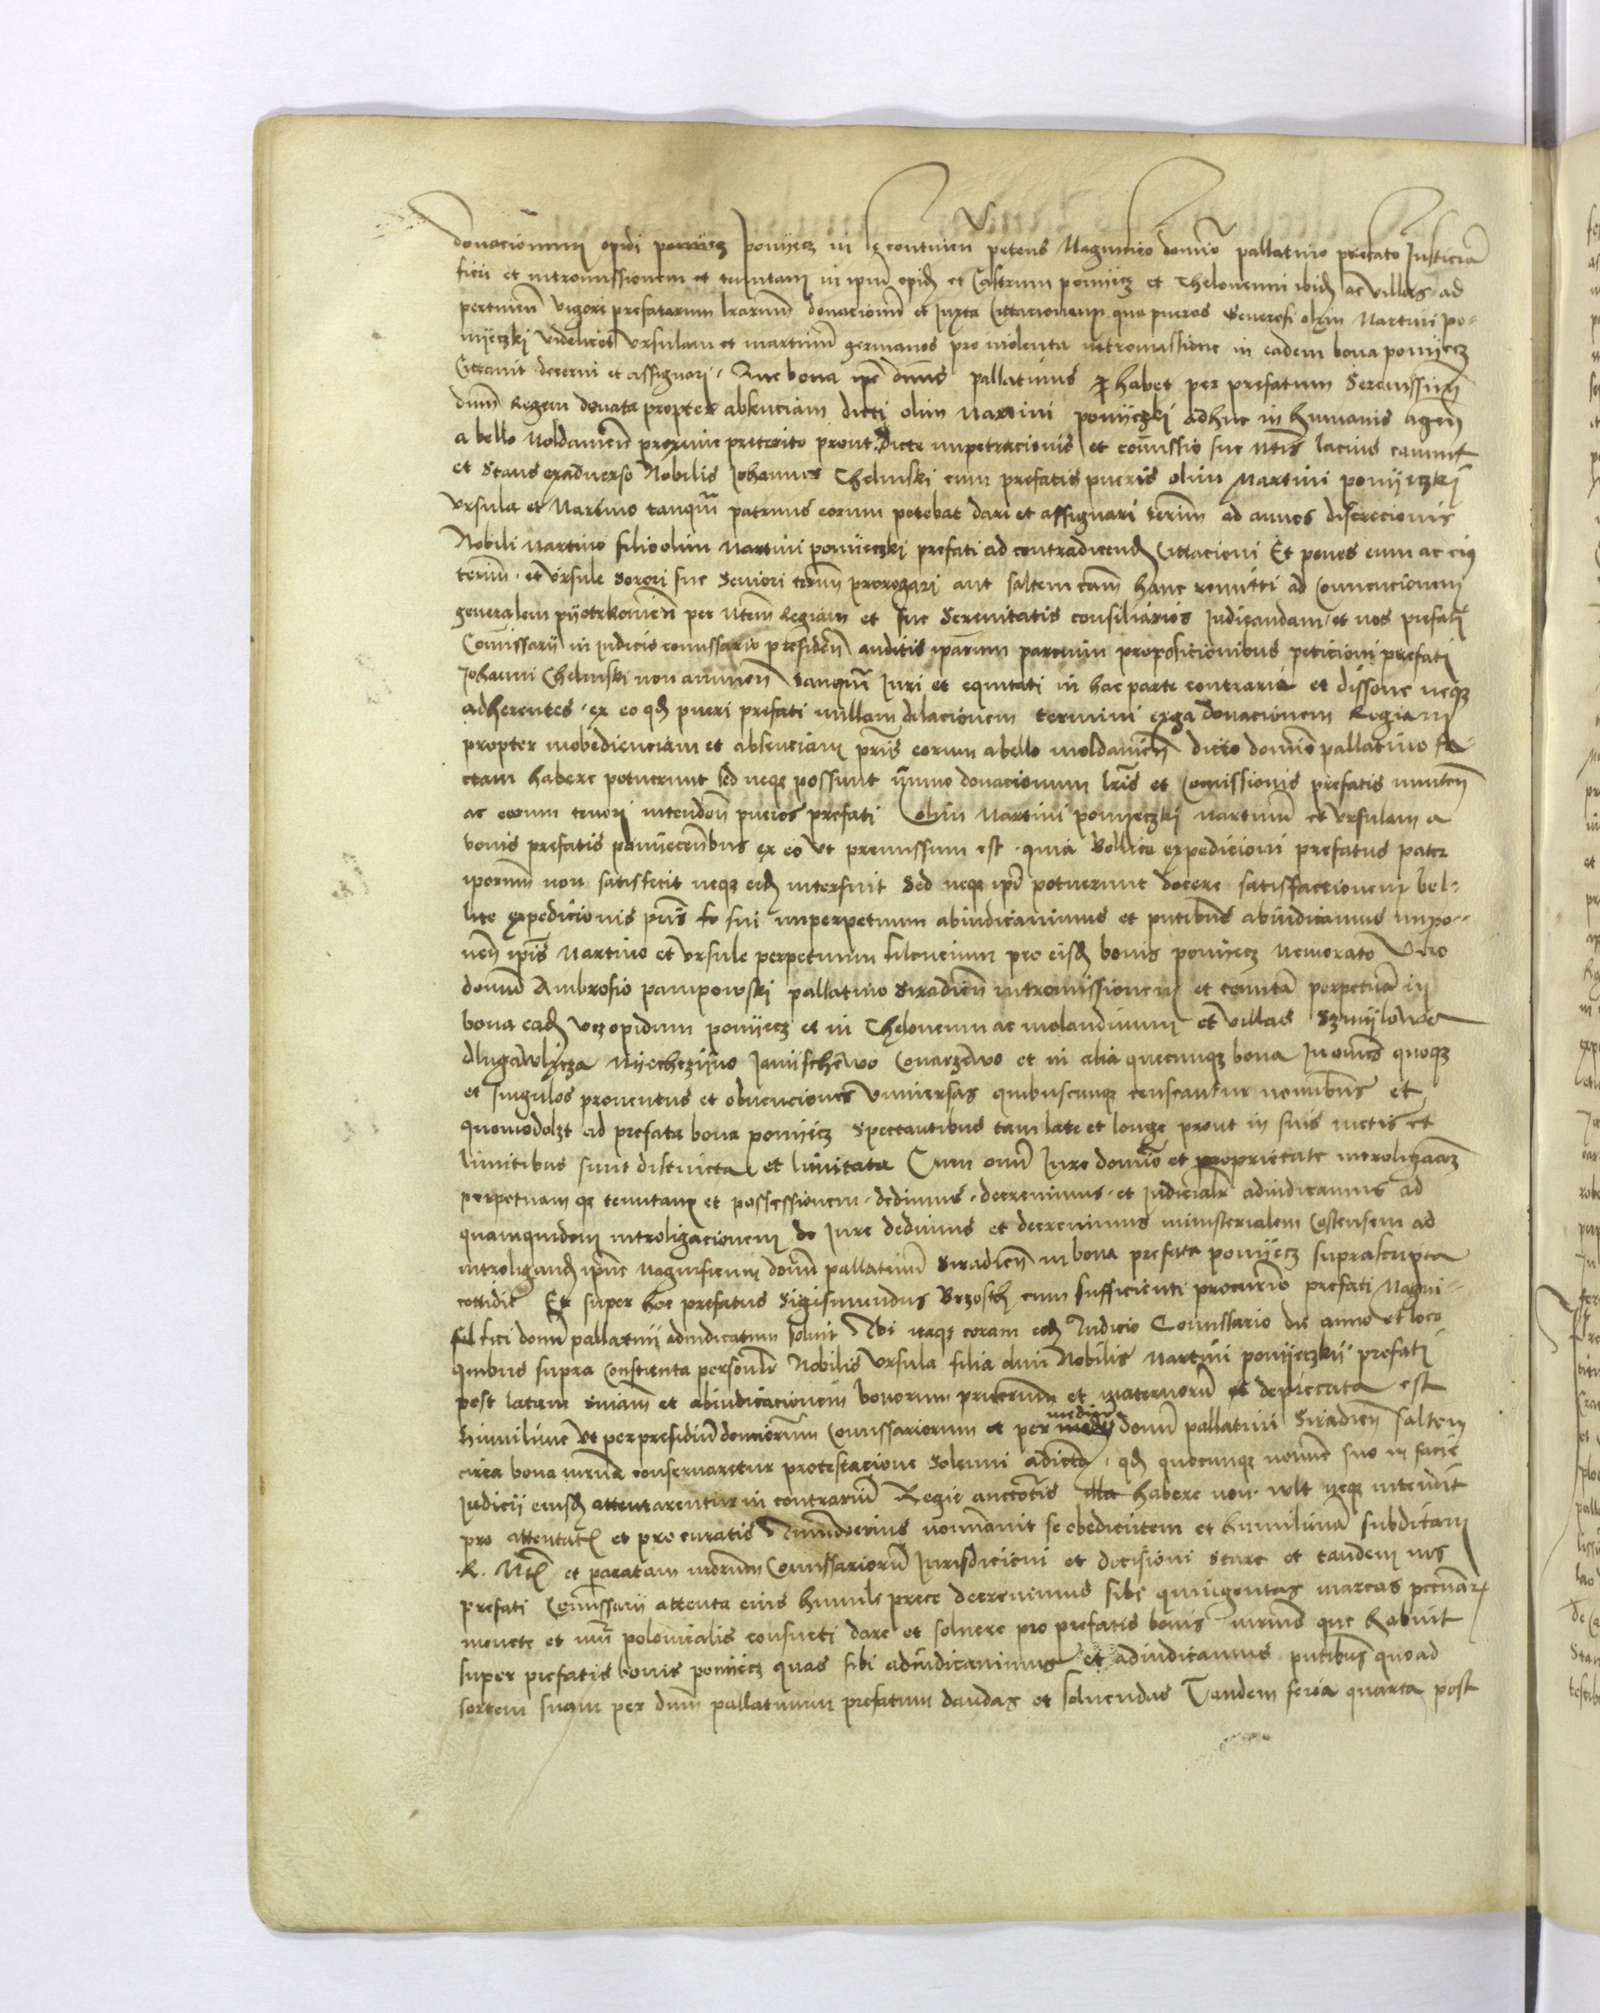 donacionum opidi ponijecz in se continen petens Magnifico domino pallatino prefato Justiciam
fieri et intromissionem et tenutam in ipm opid et Castrum ponijecz et Theloneum ibid ac villas ad
pertinen vigore prefatarum lrarum donacionum et Juxta Cittacionem qua pueros Generosi olim Martini po-
nijeczki videlicet Vrsulam et martinum germanos pro violenta intromissione in eadem bona ponijecz
Cittavit decerni et assignari. Que bona ipse dnus pallatinus habet per prefatum Serenissim
dnm Regem donata propter absenciam dicti olim Martini ponijeczki adhuc in humanis agen
a bello Moldavien proxime preterito prout dicte impetracionis et comissio sue Mtis lacius canunt
et Stans exadverso Nobilis Johannes Chelmski cum prefatis pueris olim Martini ponijeczki
Vrsula et Martino tanquam patruus eorum petebat dari et assignari terim ad annos discrecionis
Nobili Martino filio olim Martini ponijeczki prefati ad contradicend Cittacioni Et penes eum ac eius
terim et Vrsule Sorori sue Seniori termn prorogari aut saltem cam hanc remitti ad Convencionem
generalem pijotrkovien per Mtem Regiam et sue Serenitatis consiliarios Judicandam et nos prefati
Comissarii in Judicio comissario presiden auditis iparum parcium proposicionibus peticioni prefati
Johanni Chelmski non annuen tanquam Juri et equitati in hac parte contrarie et dissone neque
adherentes. ex eo qd pueri prefati nullam dilacionem termini erga donacionem Regiam
propter inobedienciam et absenciam pris eorum a bello moldavien dicto domino pallatino fa-
ctam habere potuerunt sed neque possunt ymmo donacionum lris et Comissionis prefatis inniten
ac eorum tenori intenden pueros prefati olim Martini ponijeczki Martinum et Vrsulam a
bonis prefatis ponijecensibus ex eo ut premissum est. quia Bellice expedicioni prefatus pater
iporum non satisfecit neque eid interfuit Sed neque ipi potuerunt docere satisfactionem bel-
lice expedicionis pris sui imperpetuum abiudicavimus et pntibus abiudicamus impo-
nen ipis Martino et Vrsule perpetuum silencium pro eisd bonis ponijecz Memorato Vero
domino Ambrosio pampowski pallatino Siradien intromissionem et tenutam perpetuam in
bona ead vcz opidum ponijecz et in Theloneum ac molandinum et villas Szmijlowa
dlugawlijcza Mijechczijno Janijschewo Conarzewo et in alia quecunque bona In omnes quoque
et singulos proventus et obvenciones Vniversas quibuscunque censeantur nominibus et
quomodolzt ad prefata bona ponijecz Spectantibus tam late et longe prout in suis metis et
limitibus sunt distincta et limitata Cum omni Jure domino et proprietate introligacz
perpetuam que tenutam et possessionem. dedimus. decrevimus. et Judicialr adiudicamus ad
quamquidem introligacionem de Jure dedimus et decrevimus ministerialem Costensem ad
introligand ipme Magnificum domnum pallatinum Siradien in bona prefata ponijecz suprascripta
cottidie Et super hoc prefatus Sigismundus Brzosth cum sufficienti procurio prefati Magni-
fici domni pallatini adiudicatum solvit Ubi itaque coram eod Judicio Comissario die anno et loco
quibus supra Constituta personlr Nobilis Vrsula filia olim Nobilis Martini ponijeczkij prefati
post latam sniam et abiudicacionem bonorum prnorum et maternorum deprecata est
Humilime ut per presidium dominorum Comissariorum et per medium domni pallatini Siradien saltem
circa bona mrna conservaretur protestacione Solenni adiecta. qd quecunque nomine suo in facie
Judicii eiusd attentarentur in contrarium Regie auctoritatis habere non vult neque intendit
pro attentatis et procuratis Quinymoverius nominavit se obedientem et humilimam subditam
R. Mtis et paratam indorum Comissariorum Jurisdicioni et decisioni stare et tandem nos
prefati Comissarii attenta eius humile prece decrevimus sibi quingentas marcas pecuniar
monete et numi polonicalis consueti dare et solvere pro prefatis bonis mrnis que habuit
super prefatis bonis ponijecz quas sibi adiudicavimus et adiudicamus pntibus quoad
sortem suam per dnm pallatinum prefatum dandas et solvendas Tandem feria quarta post